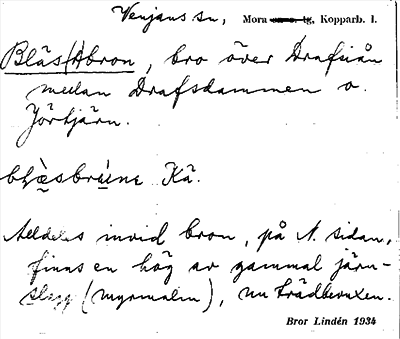 Venjans sn, Mora tg, Kopparb. l.
Bläs(t)bron, bro över Drafsån
mellan Drafsdammen o.
Jörtjärn.
Kä.
Alldeles invid bron, på N. sidan,
finns en hög av gammal järn-
slagg (myrmalm), nu trädbevuxen.
Bror Lindén 1934